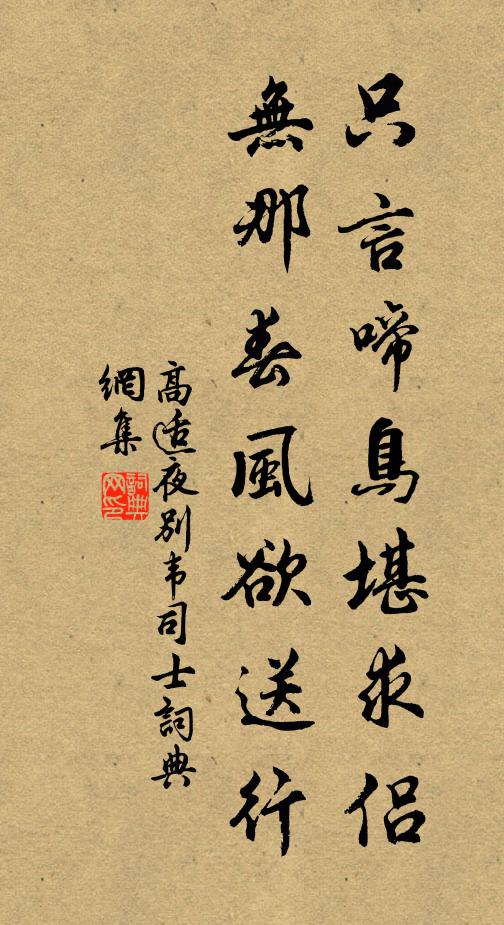 只言啼鳥堪求侶
無那春風欲送行
高适夜別韦司士詞典
網集
詞典
网印